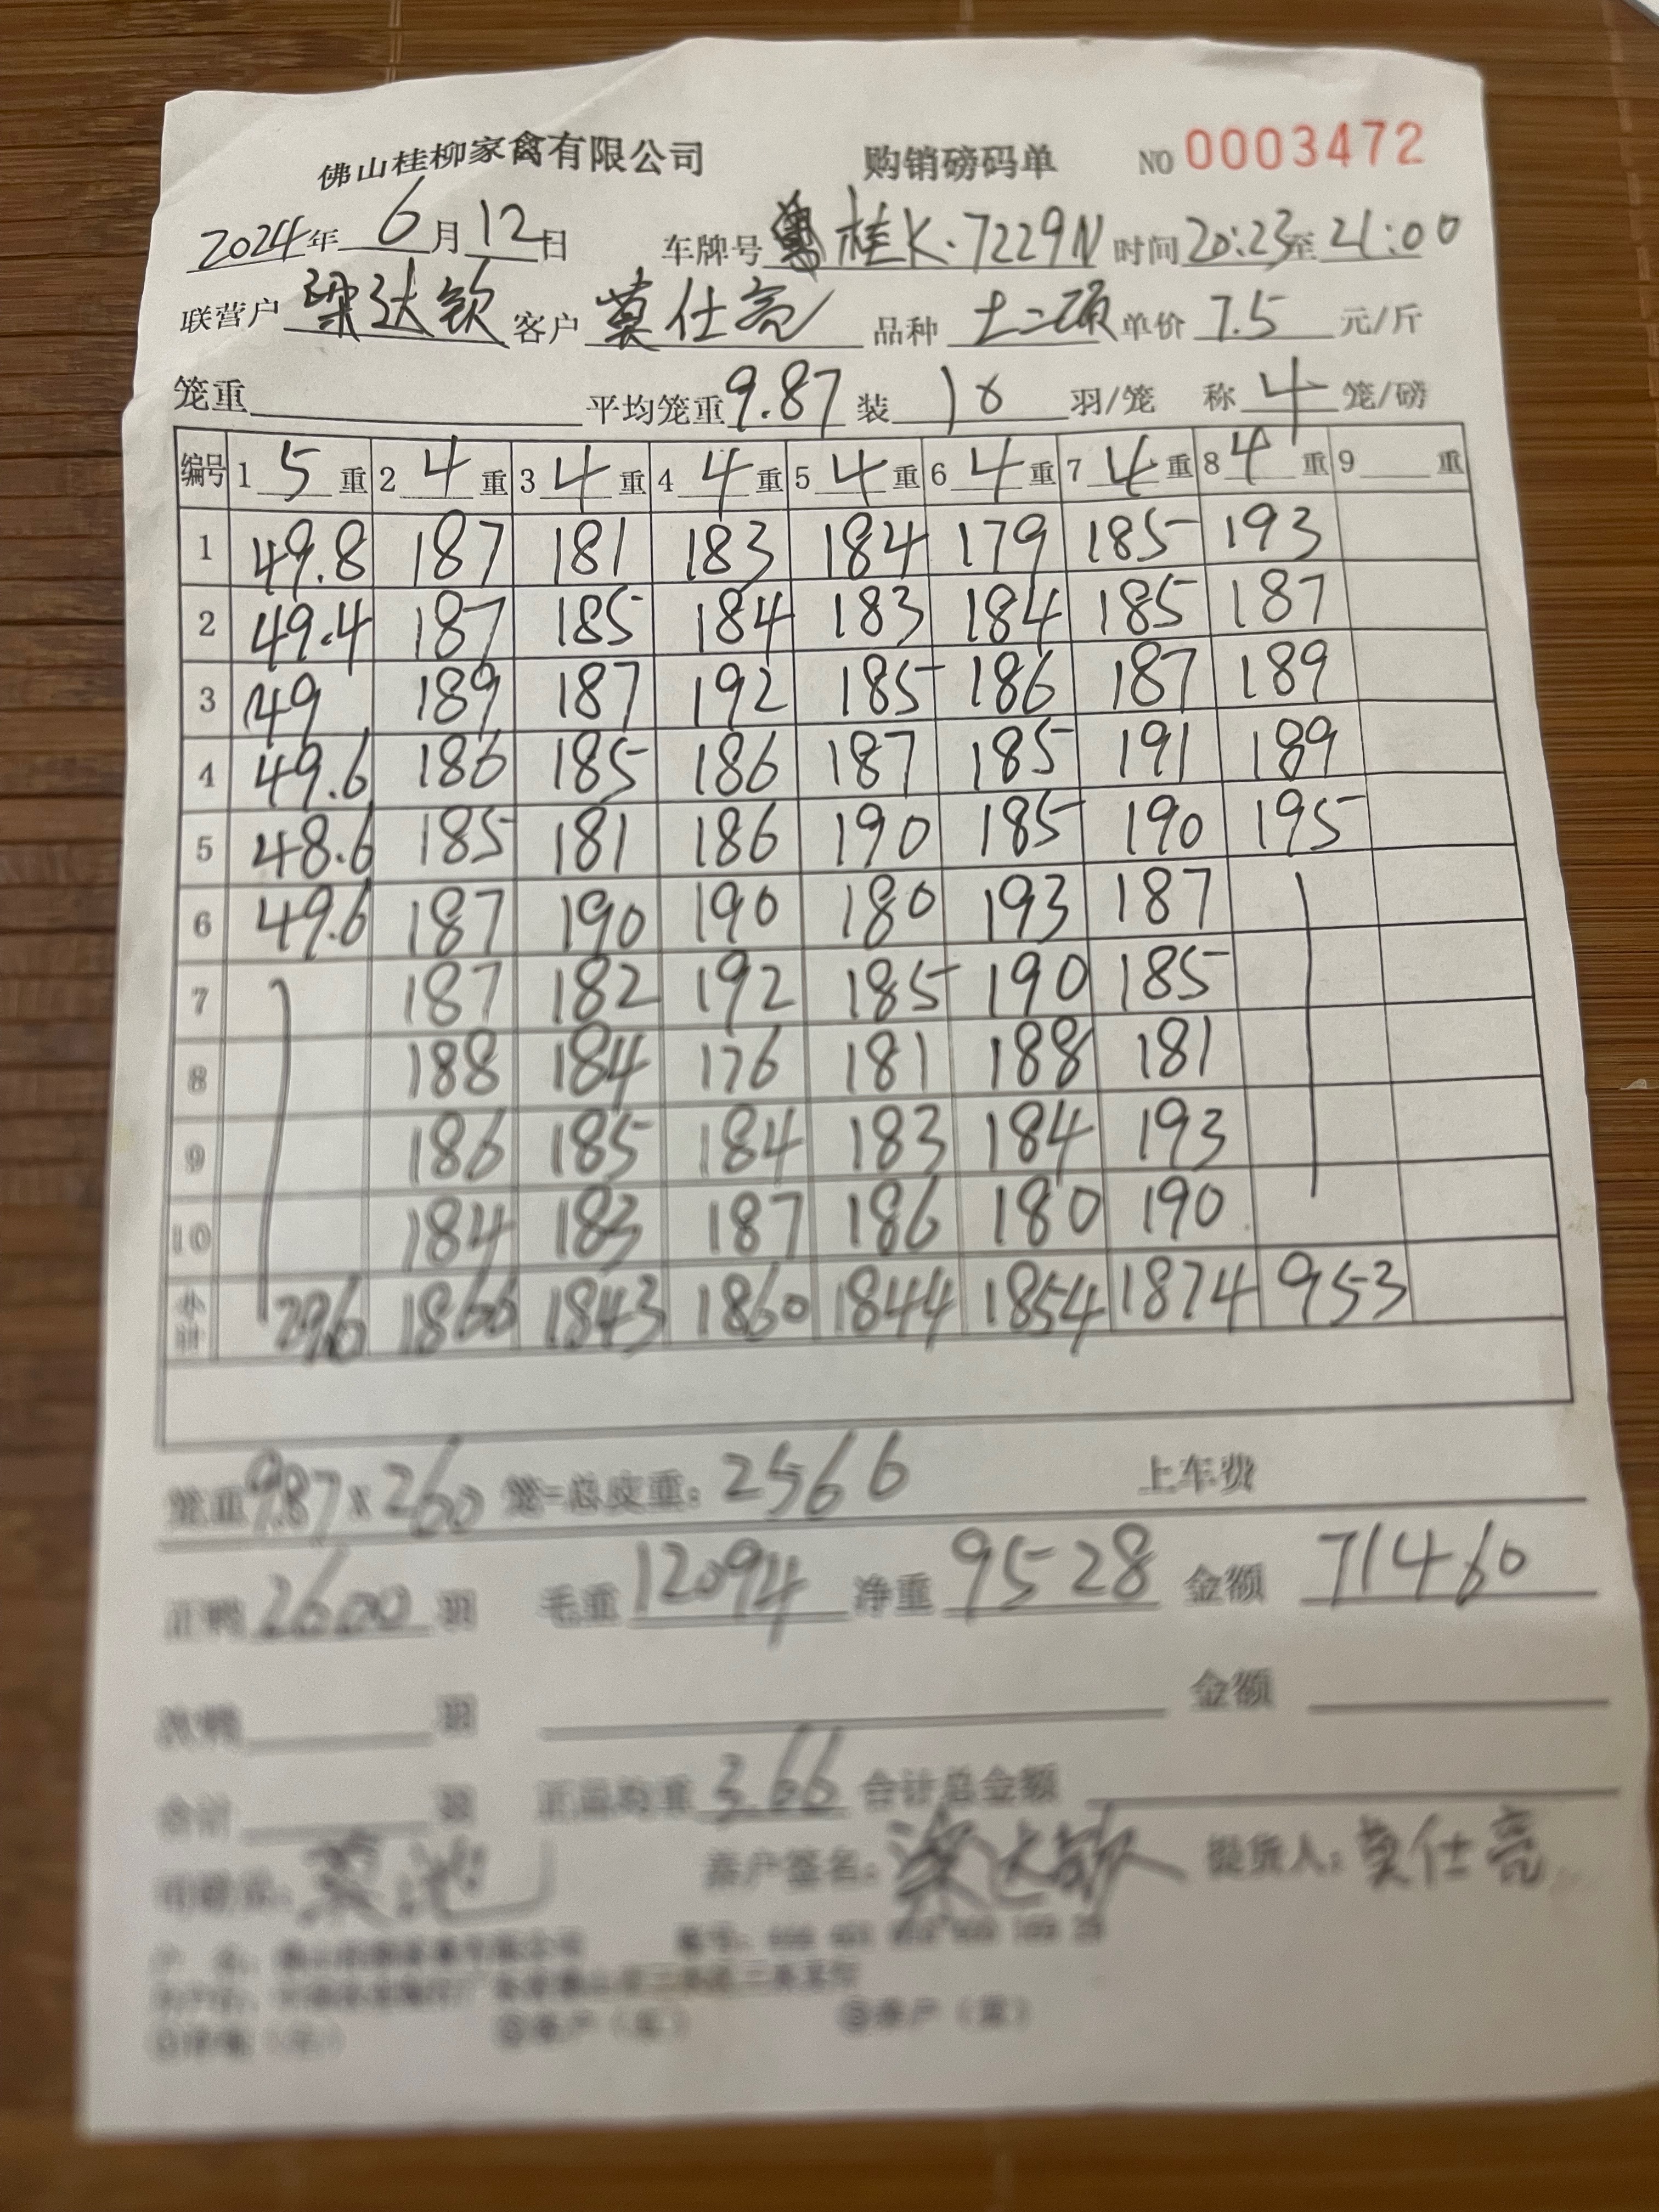 佛山桂柳家禽有限公司 购销磅码单 NO 0003472
2024年 6月12日 车牌号 桂K·7229N 时间20:23至21:00
联营户 梁达钦 客户 莫仕亮 品种 土二顶 单价 7.5 元/斤
笼重 平均笼重9.87 装 10 羽/笼 称 4 笼/磅
编号 1 5 重 2 4 重 3 4 重 4 4 重 5 4 重 6 4 重 7 4 重 8 4 重 9 重
1 49.8 187 181 183 184 179 185 193
2 49.4 187 185 184 183 184 185 187
3 49 189 187 192 185 186 187 189
4 49.6 186 185 186 187 185 191 189
5 48.6 185 181 186 190 185 190 195
6 49.6 187 190 190 180 193 187
7 187 182 192 185 190 185
8 188 184 176 181 188 181
9 186 185 184 183 184 193
10 184 183 187 186 180 190
小计 296 1866 1843 1860 1844 1854 1874 953
笼重9.87 x 260 笼=总皮重: 2566 上车费
正鸭 2600 羽 毛重 12094 净重 9528 金额 71460
次鸭 羽 金额
合计 羽 正品均重 3.66 合计总金额
客户签名: 梁达钦 提货人: 莫仕亮